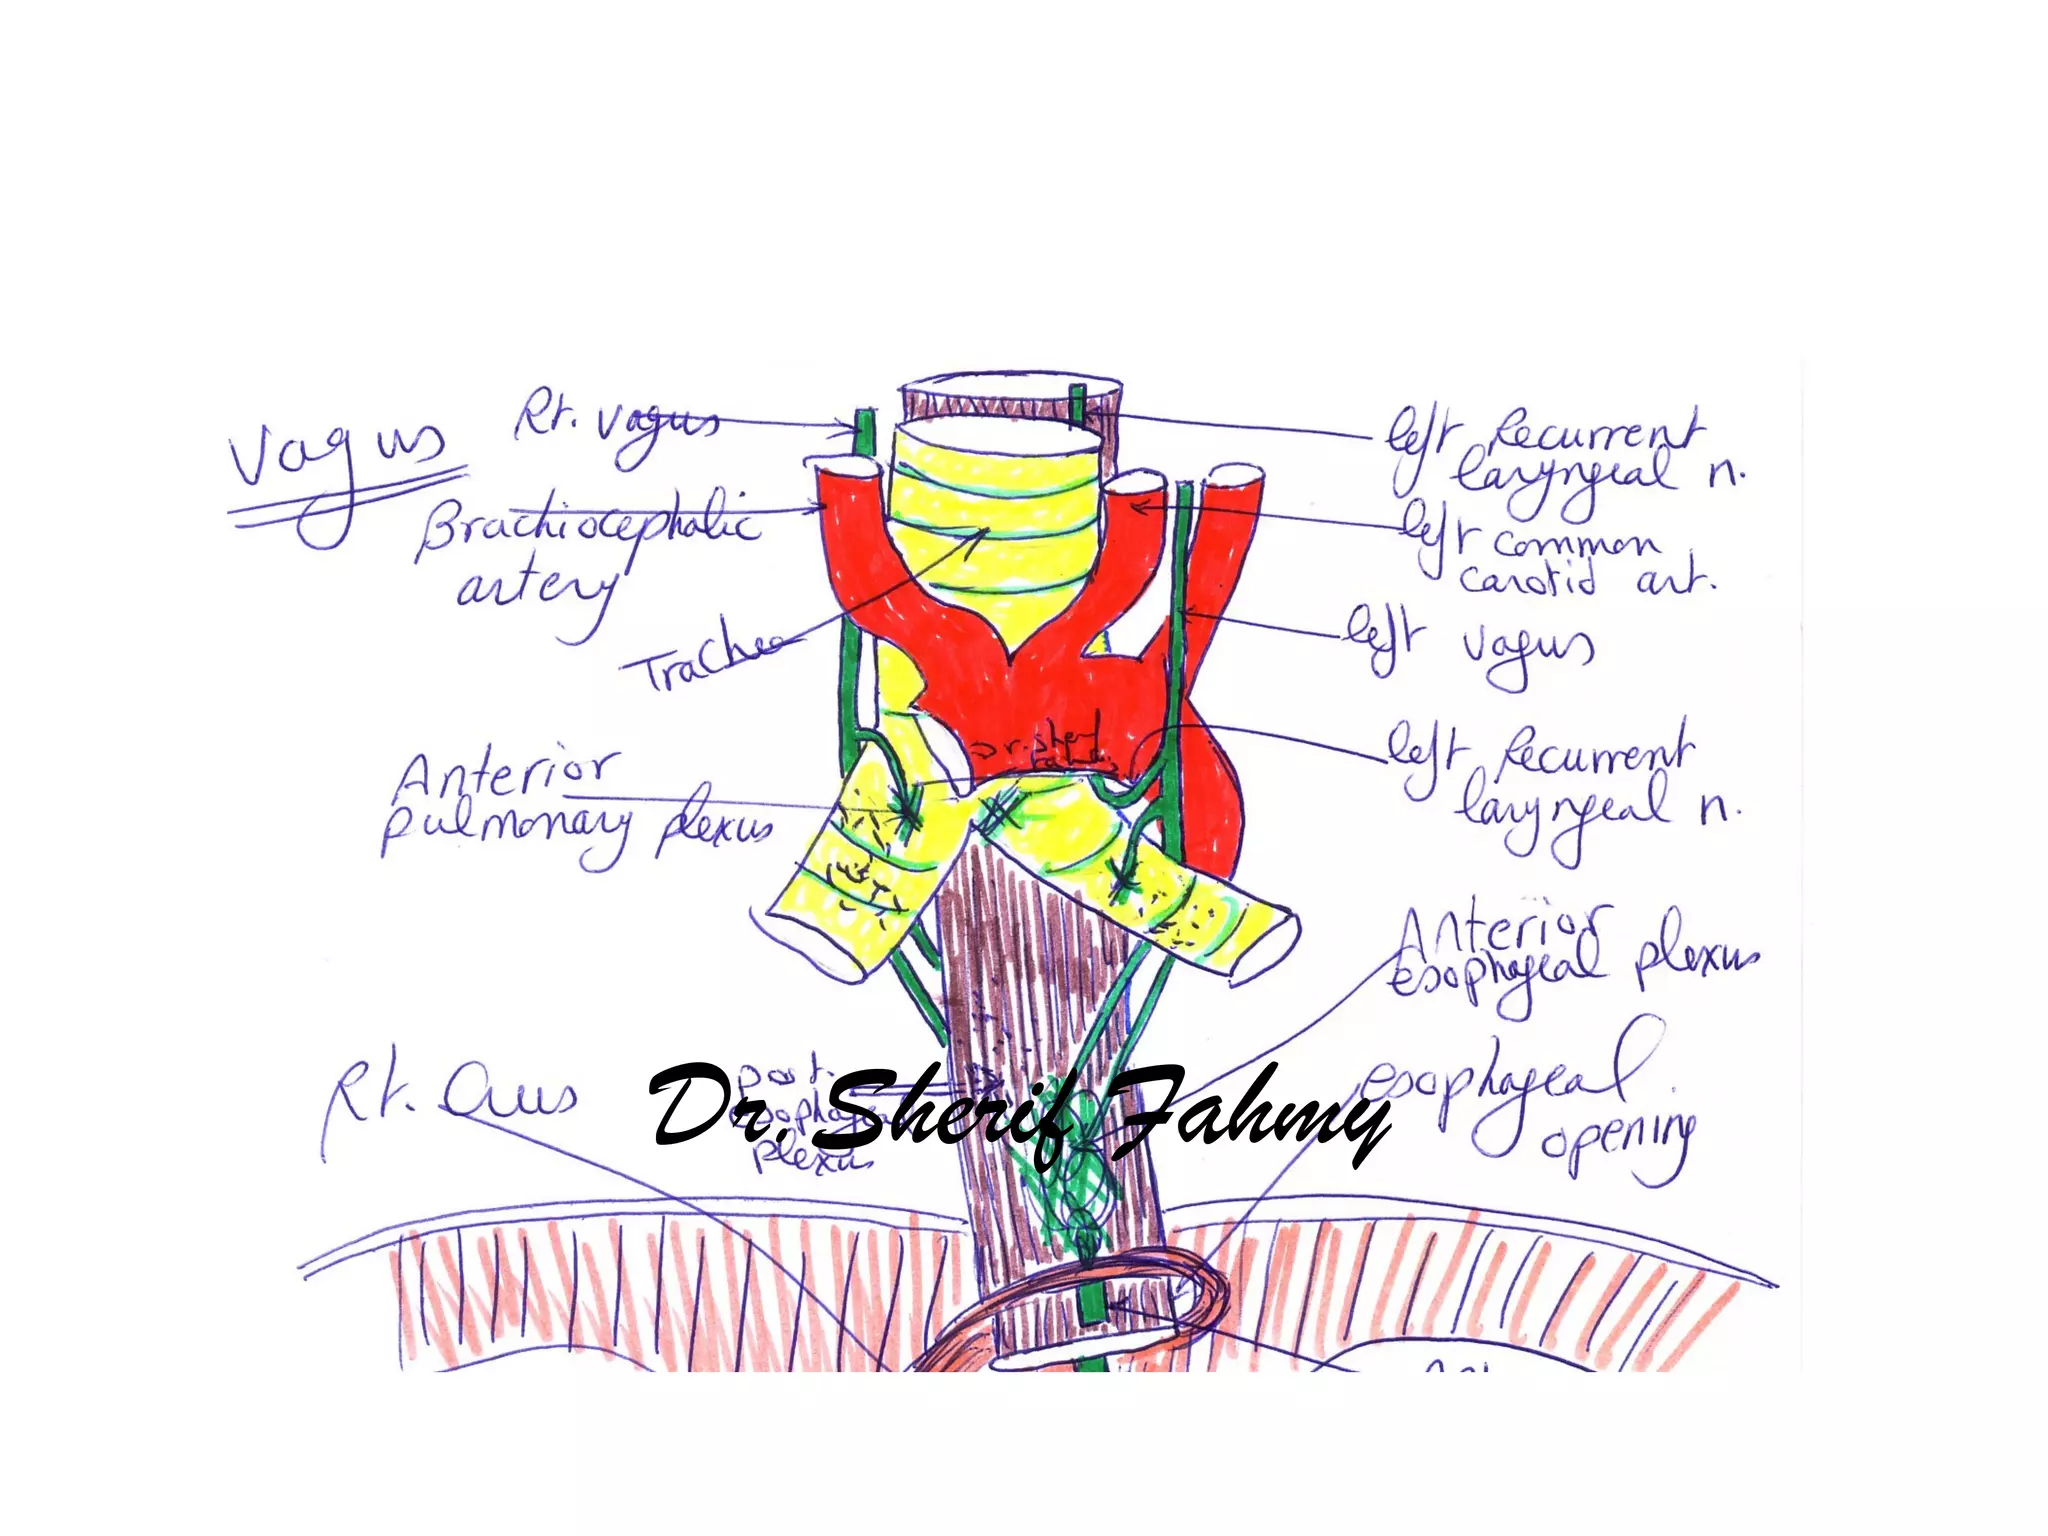 Vagus
Rt. vagus
Brachiocephalic
artery
Trachea
Anterior
pulmonary plexus
Rt. Crus
post.
esophageal
plexus
left Recurrent
laryngeal n.
left common
carotid art.
left vagus
left Recurrent
laryngeal n.
Anterior
esophageal plexus
esophageal
opening
Dr. Sherif
Dr. Sherif Fahmy